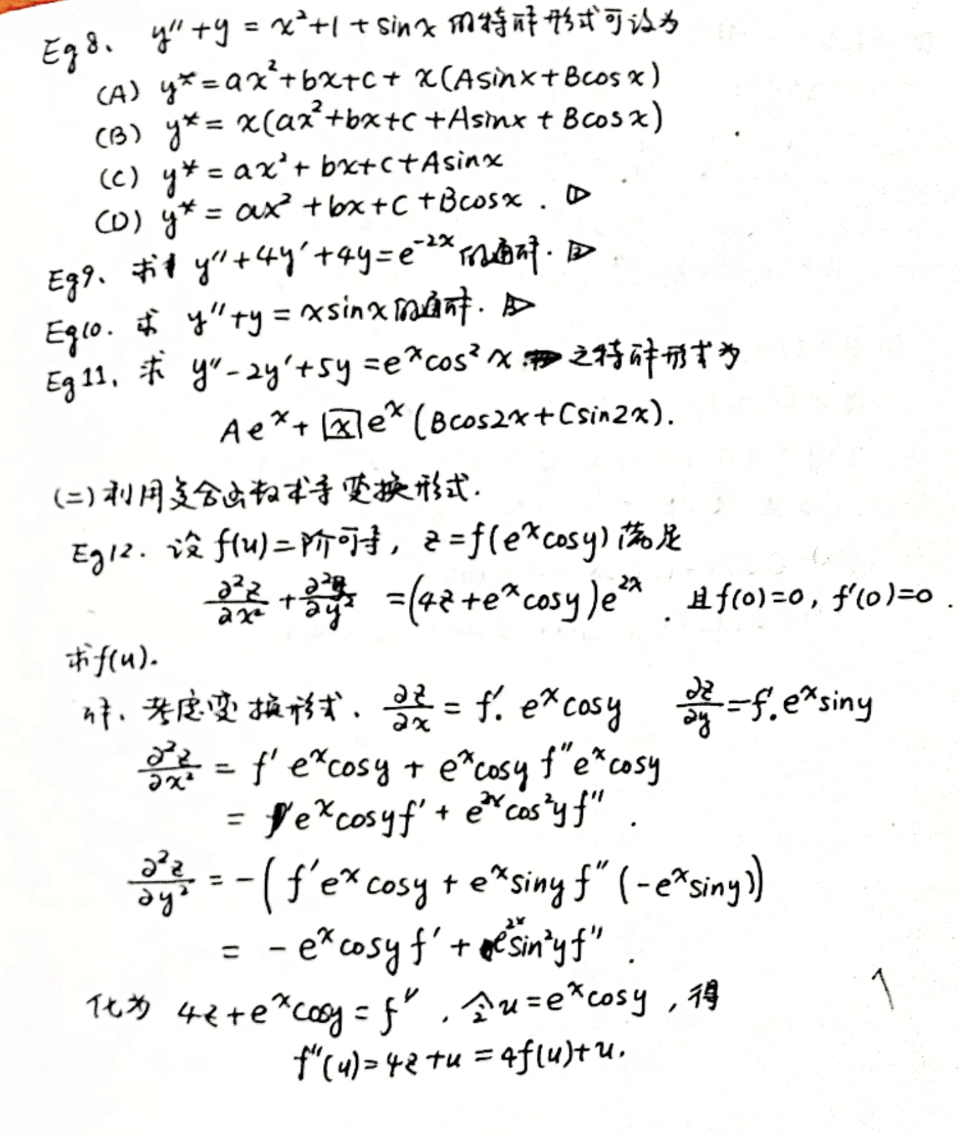 Eg8、 y''+y = x²+1+sinx 的特解形式可设为
(A) y*=ax²+bx+c+ x(Asinx+Bcosx)
(B) y*= x(ax²+bx+c+Asinx+Bcosx)
(C) y*=ax²+bx+c+Asinx
(D) y*= ax²+bx+c+Bcosx.
Eg9、求 y''+4y'+4y=e^{-2x} 的通解.
Eg10. 求 y''+y = xsinx的通解.
Eg11、求 y''-2y'+5y=e^x cos²x 之特解形式为
Ae^x+ x e^x (Bcos2x+Csin2x).
(二)利用复合函数求导变换形式.
Eg12. 设 f(u)二阶可导, z=f(e^x cosy) 满足
∂²z/∂x² + ∂²z/∂y² =(4z+e^x cosy)e^{2x}. 且f(0)=0, f'(0)=0.
求f(u).
解、考虑变换形式. ∂z/∂x = f'. e^x cosy ∂z/∂y =-f'. e^x siny
∂²z/∂x² = f' e^x cosy + e^x cosy f'' e^x cosy
= e^x cosyf' + e^{2x} cos²y f''.
∂²z/∂y² = -( f'e^x cosy + e^x siny f'' (-e^x siny))
= - e^x cosy f' + e^{2x} sin²y f''.
化为 4z+e^x cosy = f''. 令u=e^x cosy, 得
f''(u)=4z+u = 4f(u)+u.
1